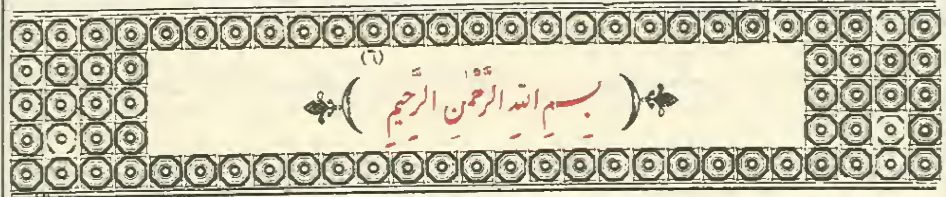 (٦)
﴿ بِسمِ اللهِ الرَّحْمٰنِ الرَّحِيمِ ﴾